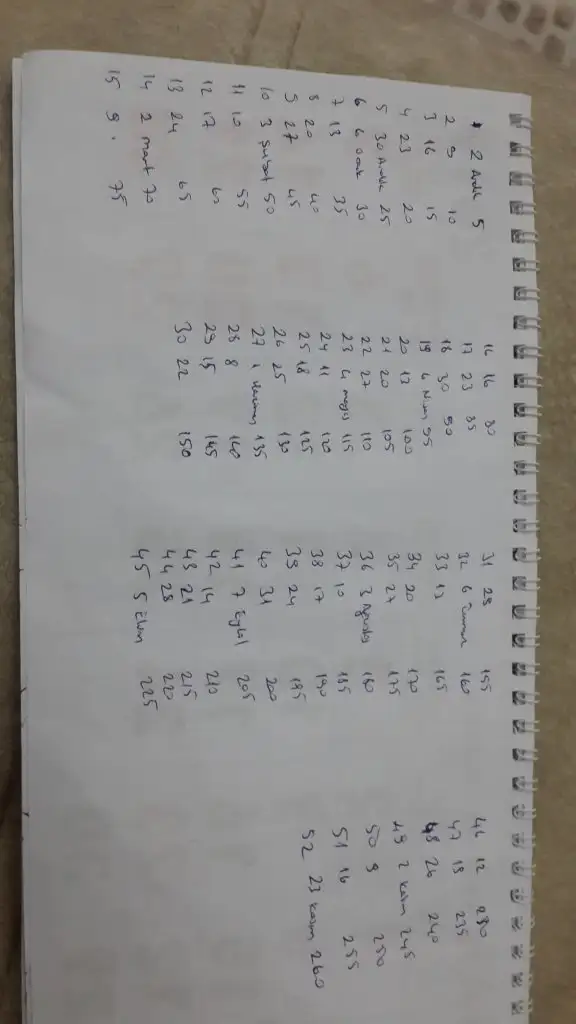 1 2 Aralık 5
2 9 10
3 16 15
4 23 20
5 30 Aralık 25
6 6 Ocak 30
7 13 35
8 20 40
9 27 45
10 3 Şubat 50
11 10 55
12 17 60
13 24 65
14 2 mart 70
15 9 . 75
16 16 80
17 23 85
18 30 90
19 6 Nisan 95
20 13 100
21 20 105
22 27 110
23 4 mayıs 115
24 11 120
25 18 125
26 25 130
27 1 Haziran 135
28 8 140
29 15 145
30 22 150
31 29 155
32 6 Temmuz 160
33 13 165
34 20 170
35 27 175
36 3 Ağustos 180
37 10 185
38 17 190
39 24 195
40 31 200
41 7 Eylül 205
42 14 210
43 21 215
44 28 220
45 5 Ekim 225
46 12 230
47 19 235
48 26 240
49 2 Kasım 245
50 9 250
51 16 255
52 23 Kasım 260